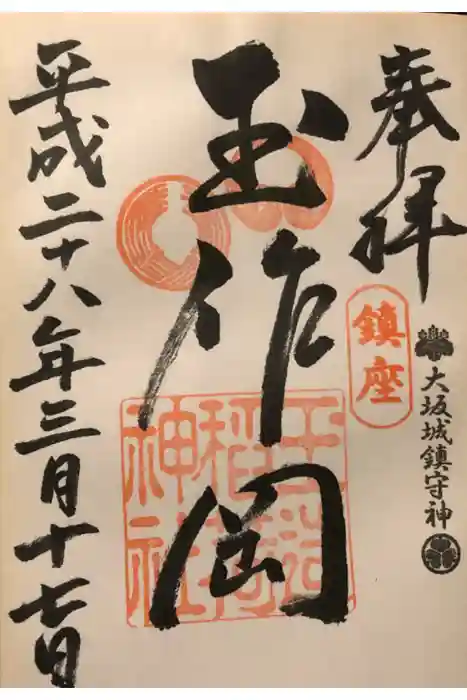 奉拝
鎮座
大坂城鎮守神
玉作岡
玉造稲荷神社
平成二十八年三月十七日